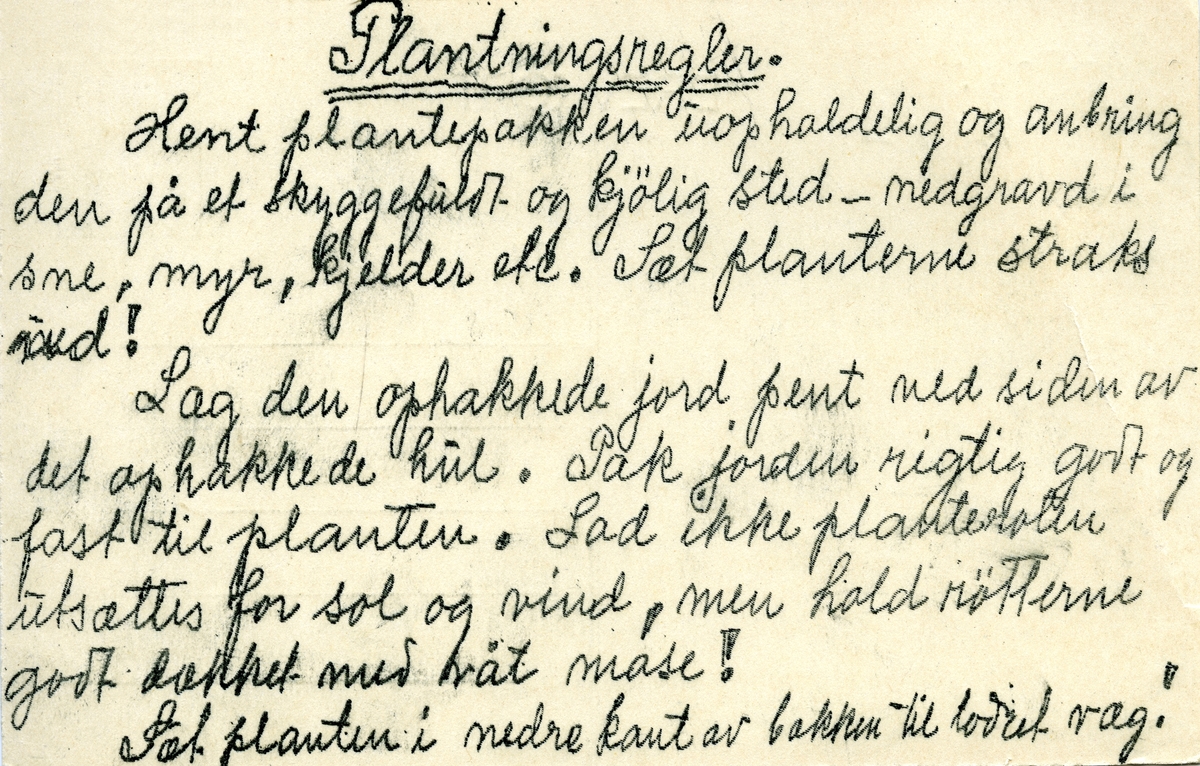 Plantningsregler.
Hent plantepakken uopholdelig og anbring
den på et skyggefuldt og kjölig sted – nedgravd i
sne, myr, kjelder etc. Sæt planterne straks
ned!
Læg den ophakkede jord pent ved siden av
det ophakkede hul. Pak jorden rigtig godt og
fast til planten. Lad ikke planteroten
utsættes for sol og vind, men hold rötterne
godt dækket med våt mose!
Sæt planten i nedre kant av bakken til lodret væg!